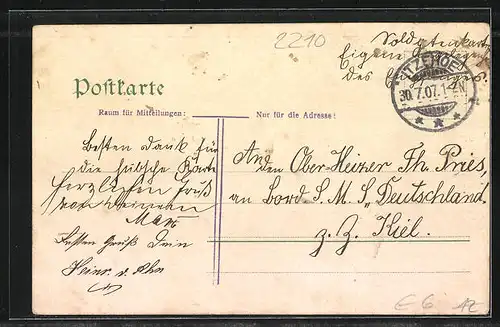 2210
Soldatenkarte
Eigene Angelegenheit
des Empfängers.
ITZEHOE
30.7.07.1-2N.
Postkarte
Raum für Mitteilungen:
Nur für die Adresse:
besten dank für
die hübsche Karte
herzlichen Gruß
von deinem
Max
Besten Gruß Dein
Heinr. v.
An
den Ober-Heizer Th. Pries,
an Bord S. M. S. „Deutschland.
z. Z. Kiel.
E 6